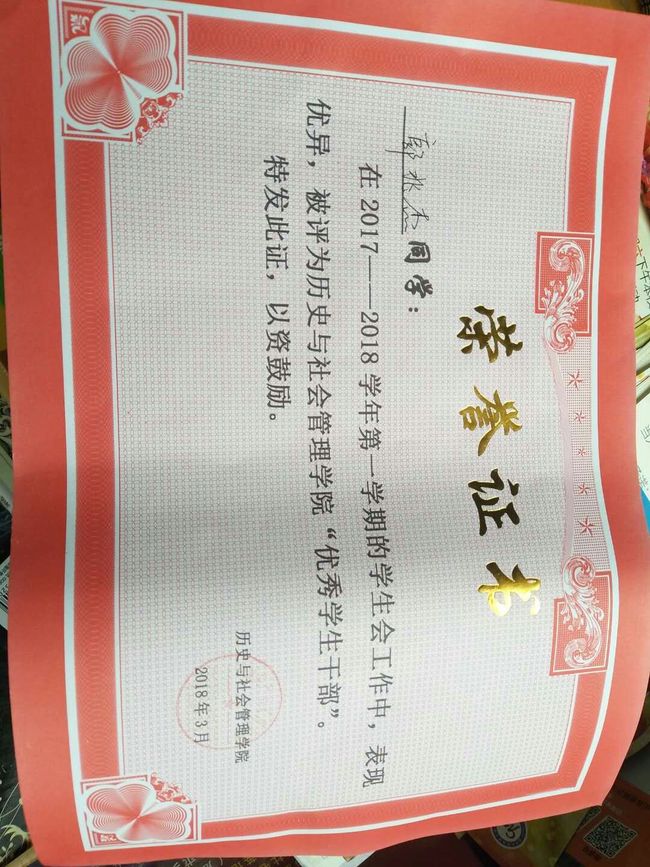 荣誉证书
郭兆杰同学：
在2017——2018学年第一学期的学生会工作中，表现
优异，被评为历史与社会管理学院“优秀学生干部”。
特发此证，以资鼓励。
历史与社会管理学院
2018年3月